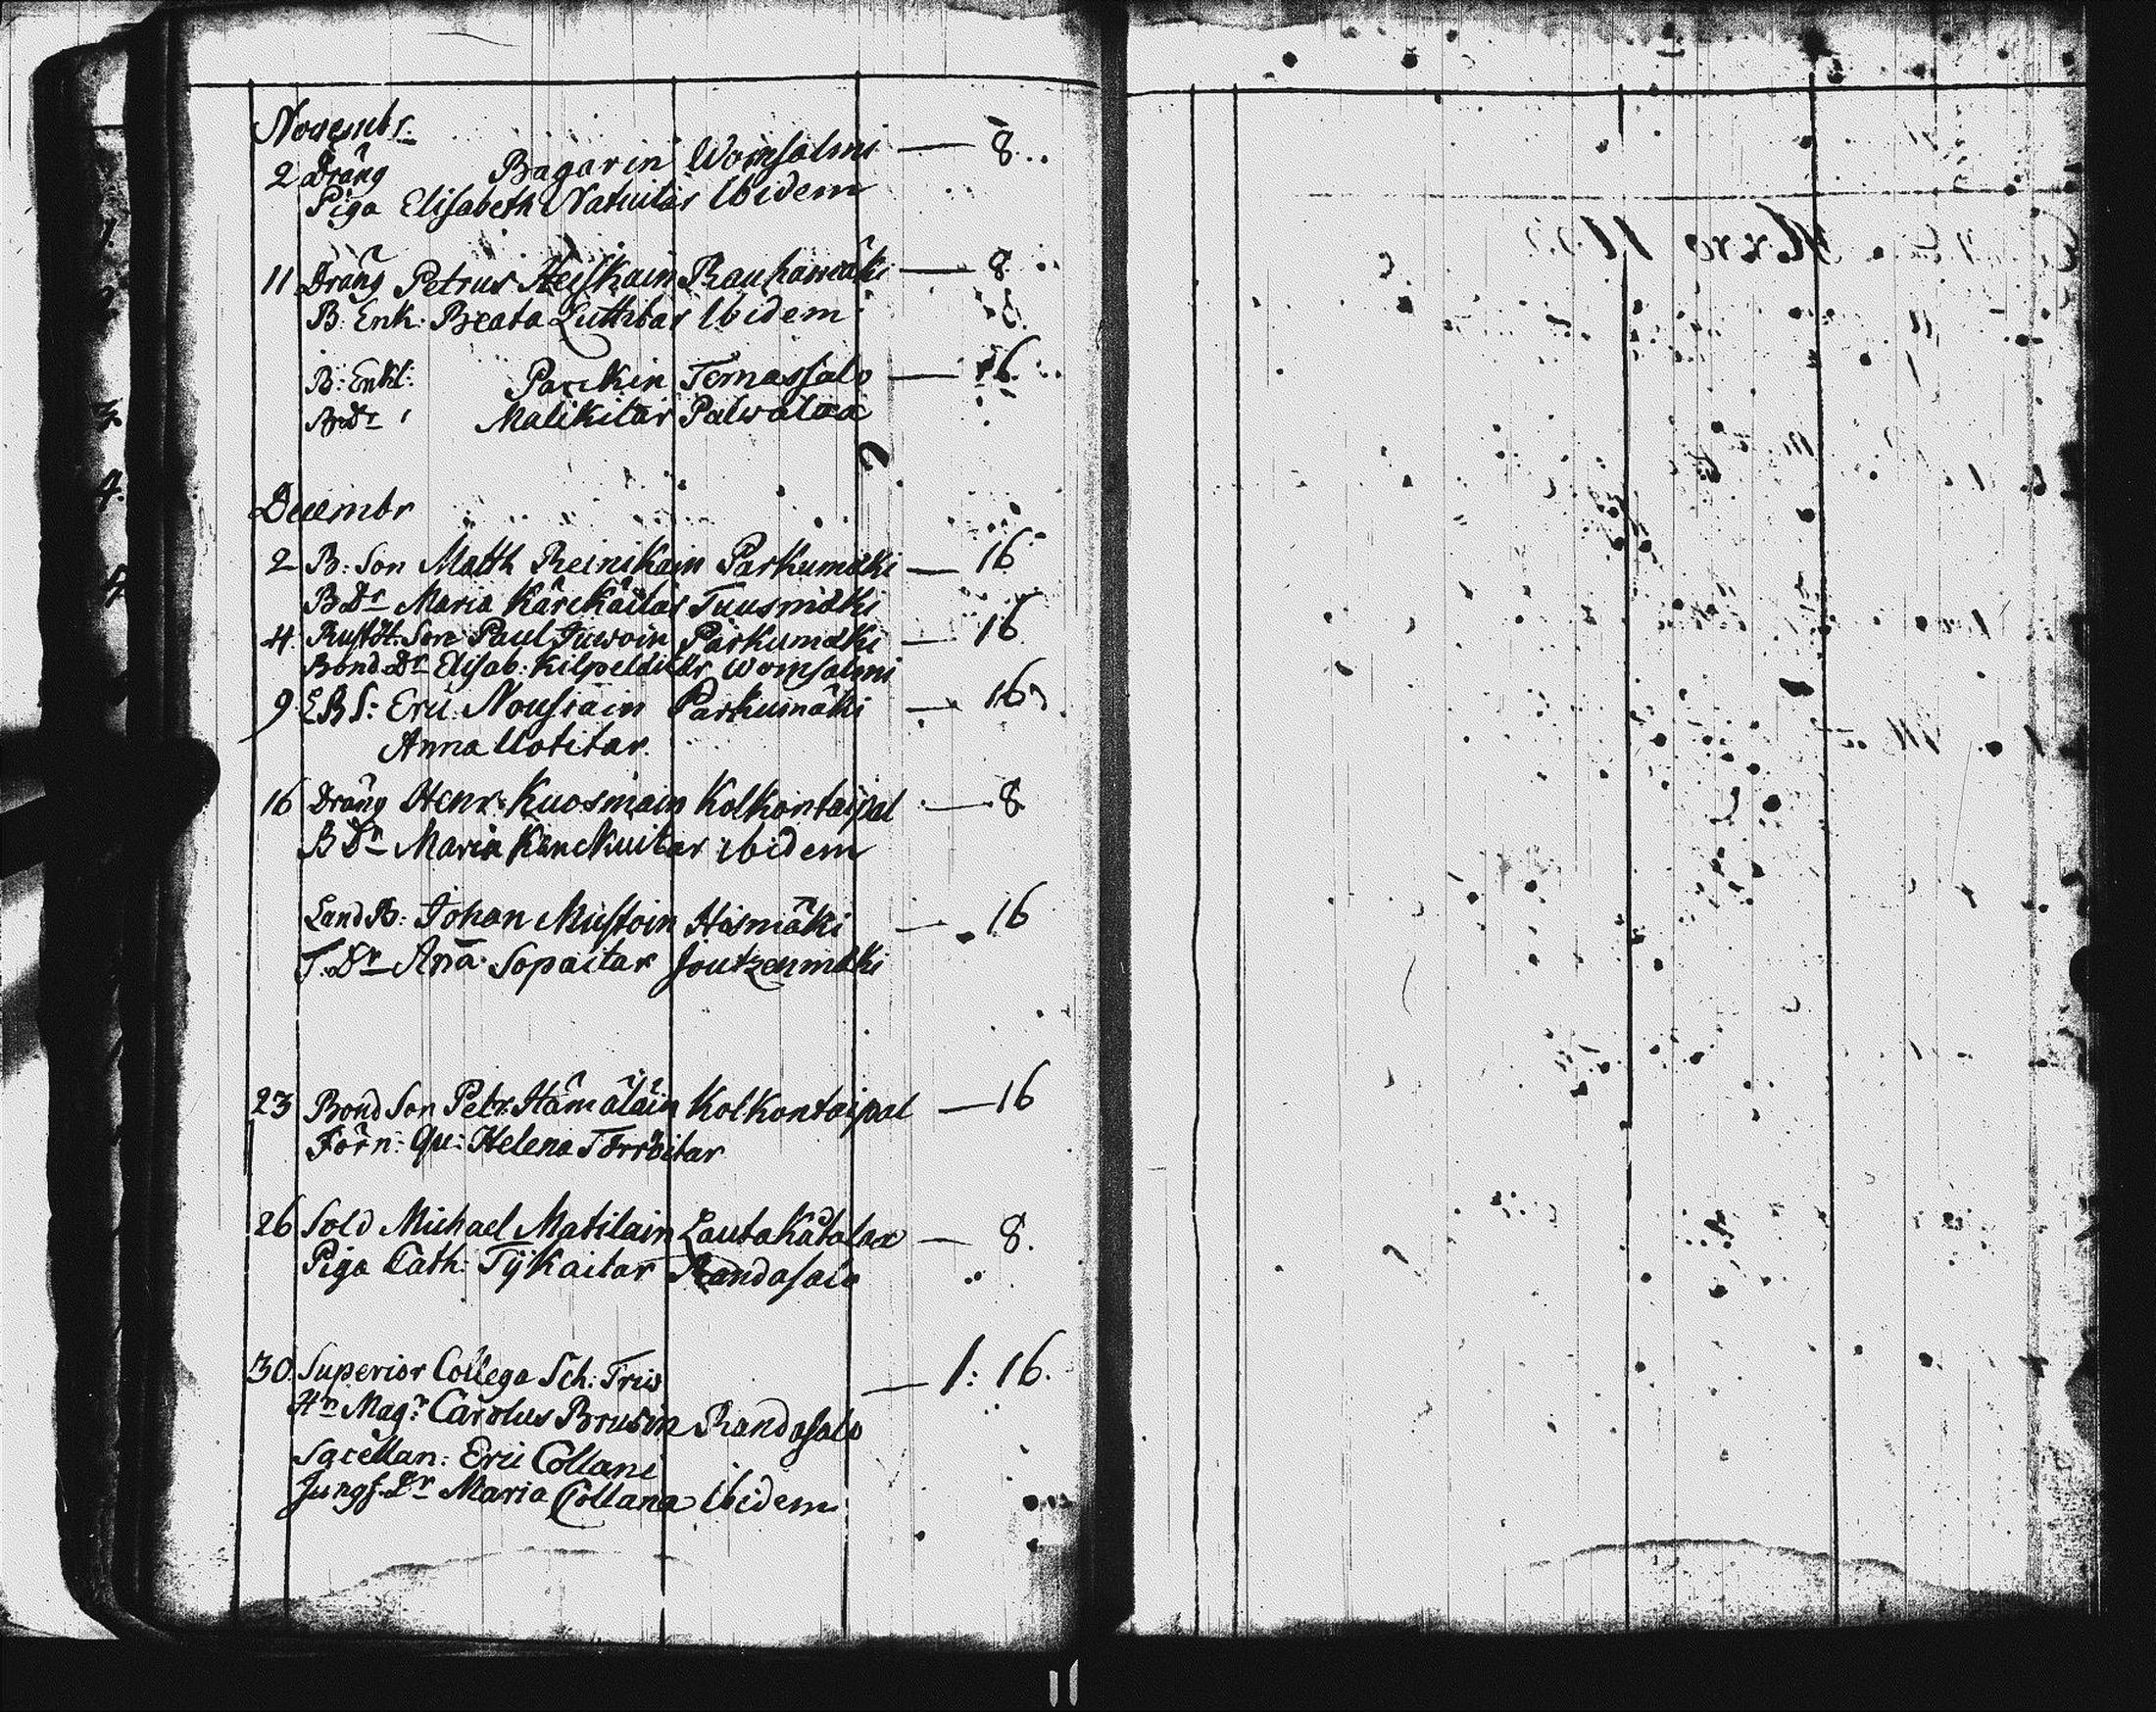 Novembr.
2 Dräng Bagarin Woinsalmi — 8
Piga Elisabeth Natuitar Ibidem
11 Dräng Petrus Heiskain Rauhamäki — 8
B: Enk: Beata Lutthitar Ibidem
B: Enkl: Parckin Ternassalo — 16
B:Dr Malikitar Palwalax
Decembr
2 B: Son Matth Reinikain Parkumäki — 16
B Dr Maria Kärckäitar Tuusmäki
4. Rusth: Son Paul Juwoin Parkumäki — 16
Bond Dr Elisab: Kilpeläitär Woinsalmi
9. L B S: Eric: Nousiain Parkumäki — 16
Anna Uotitar.
16 Dräng Henr: Kuosmain Kolkontaipal — 8
B Dr Maria Känckuitar ibidem
Land B: Johan Mustoin Hasmäki — 16
T. Dr Ana: Sopaitar Joutzenmäki
23 Bond Son Petr: Hämäläin Kolkontaipal — 16
Förn: Qu: Helena Torröitar
26 Sold Michael Matilain Lautakatalax — 8.
Piga Cath: Tijkaitar Randasalo
30. Superior Collega Sch: Triv — 1: 16.
Hr Magr Carolus Brusin Randasalo
Sacellan: Eric Collani
Jungf. Dr Maria Collana Ibidem
11